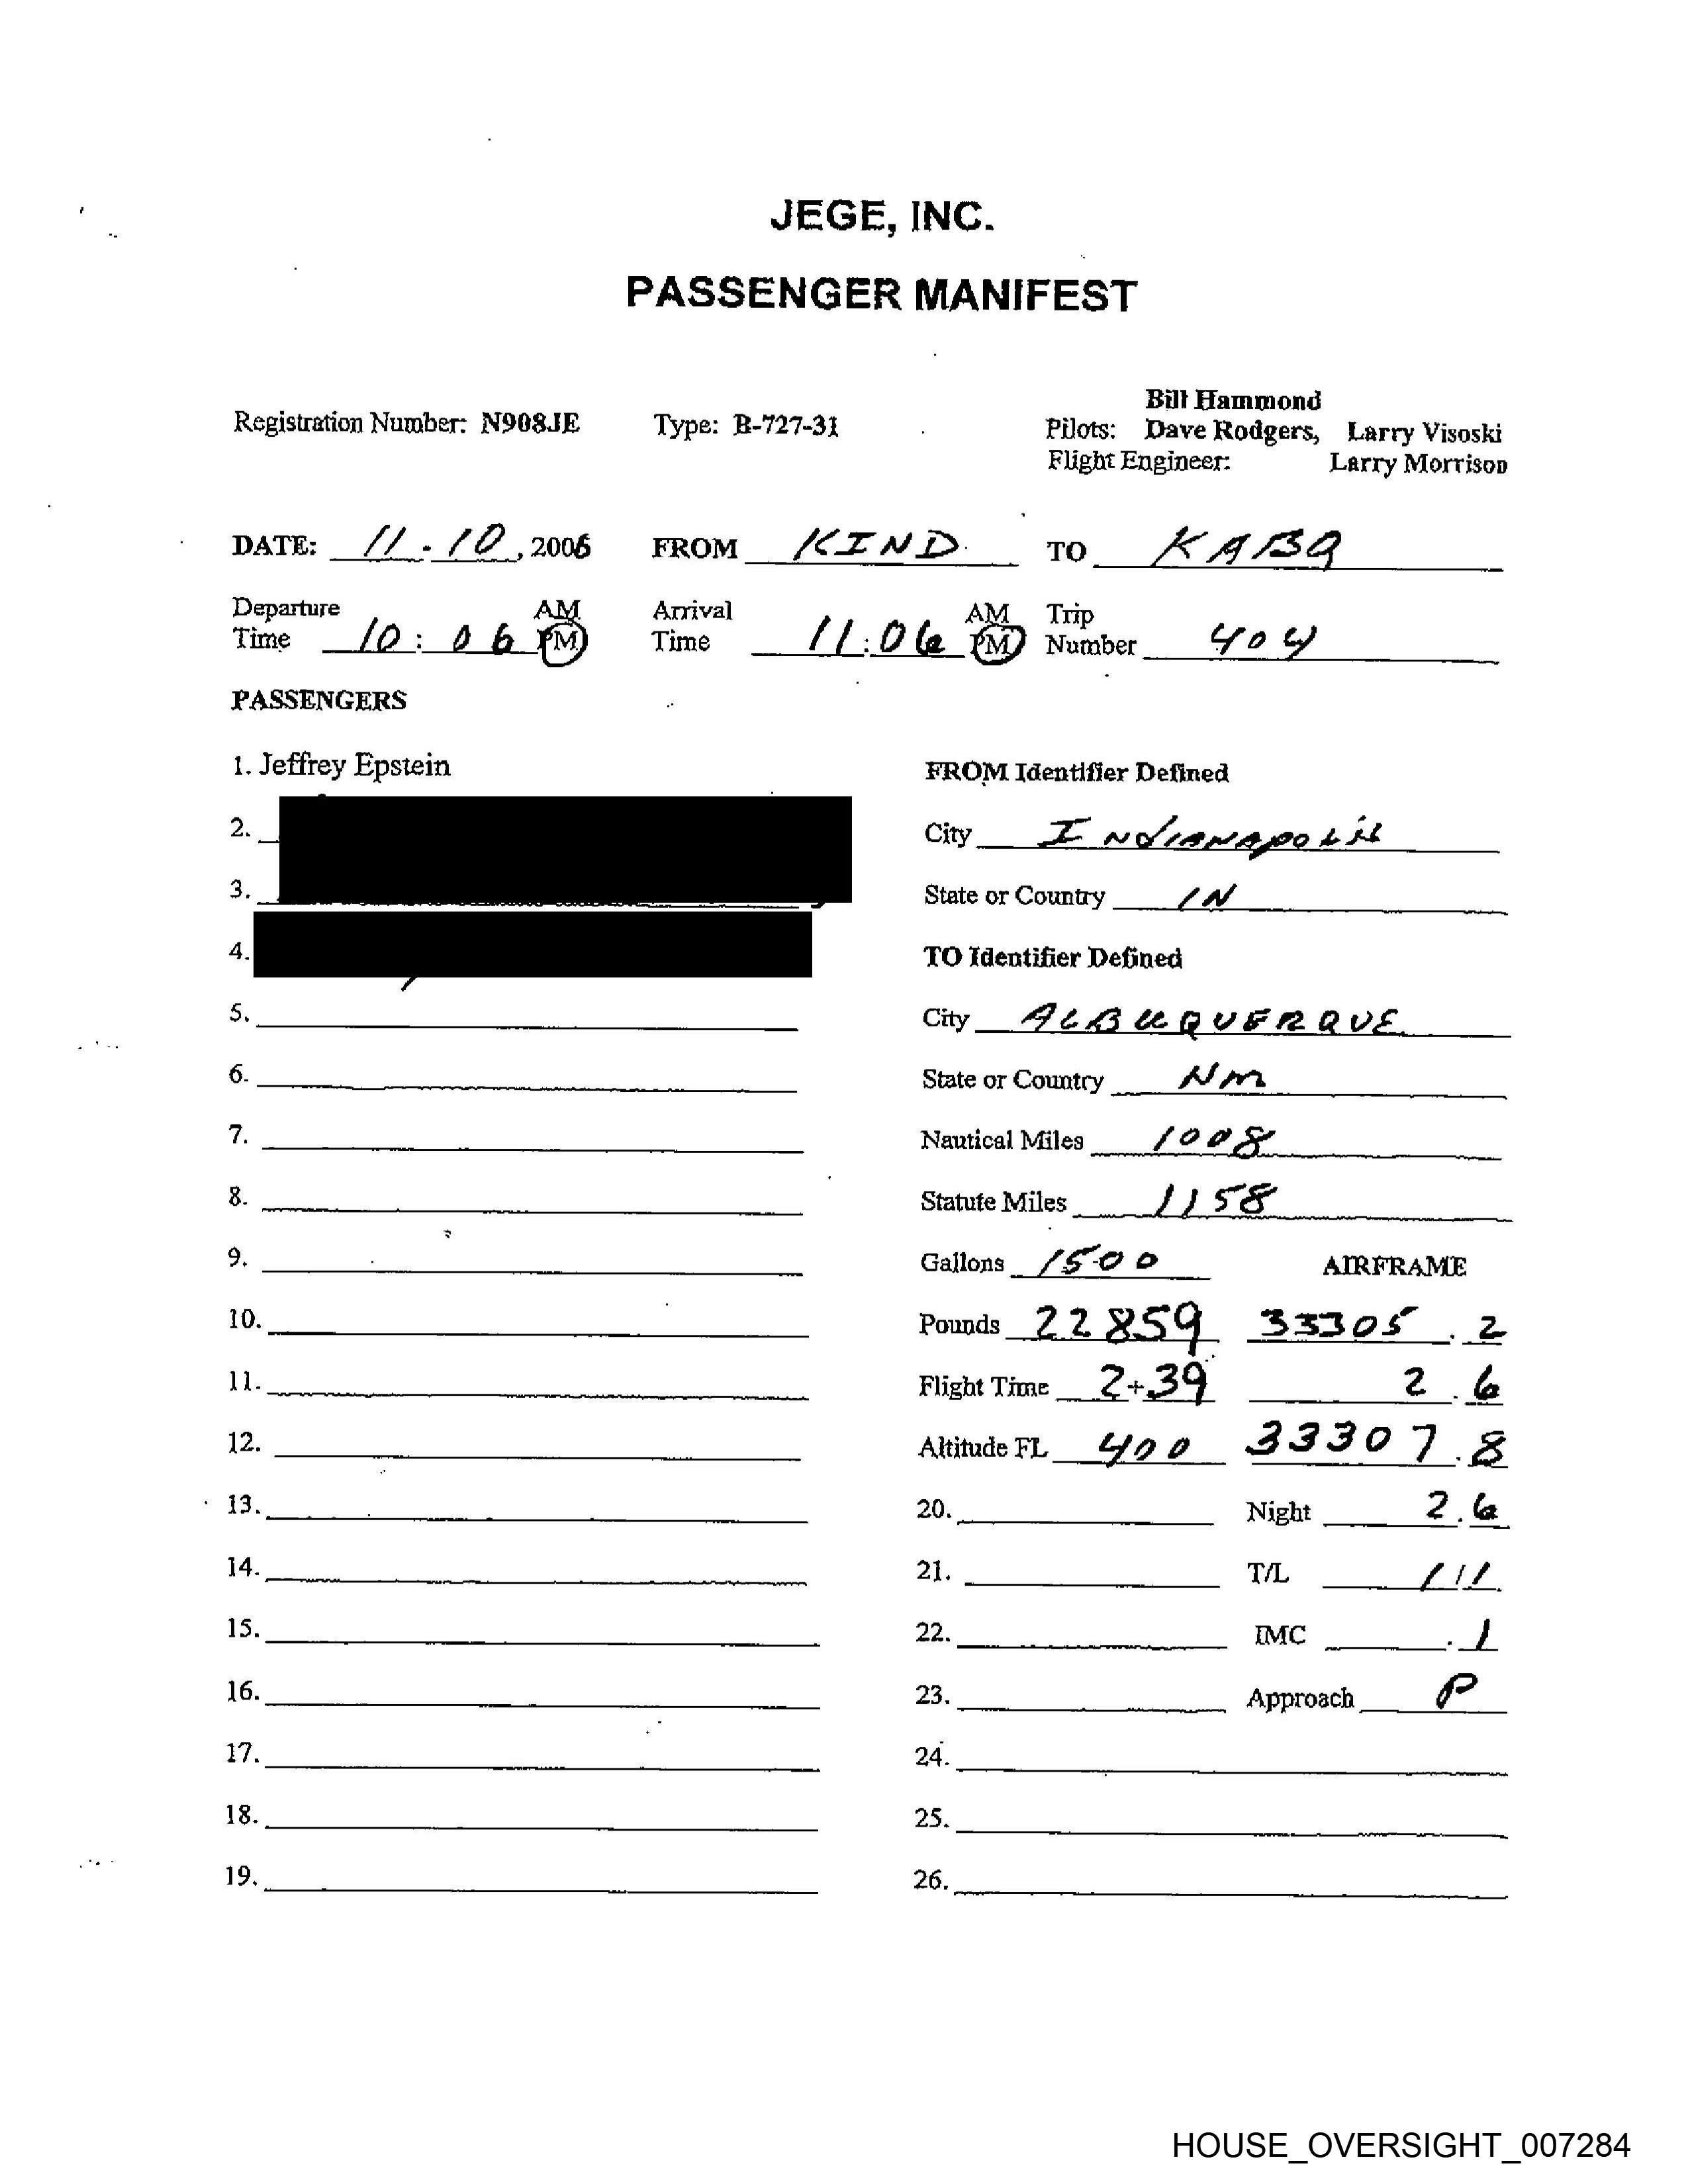 JEGE, INC.
PASSENGER MANIFEST
Bill Hammond
Registration Number: N908JE Type: B-727-31 Pilots: Dave Rodgers, Larry Visoski
Flight Engineer: Larry Morrison
DATE: 11-10, 2006 FROM KIND TO KABQ
Departure Time 10:06 AM PM Arrival Time 11:06 AM PM Trip Number 404
PASSENGERS
1. Jeffrey Epstein
FROM Identifier Defined
2.
City INdIANApOLiS
3.
State or Country IN
4.
TO Identifier Defined
5.
City ALBUQUERQUE
6.
State or Country Nm
7.
Nautical Miles 1008
8.
Statute Miles 1158
9.
Gallons 1500 AIRFRAME
10.
Pounds 22859 33305.2
11.
Flight Time 2+39 2.6
12.
Altitude FL 400 33307.8
13.
20. Night 2.6
14.
21. T/L 1/1
15.
22. IMC .1
16.
23. Approach P
17.
24.
18.
25.
19.
26.
HOUSE_OVERSIGHT_007284